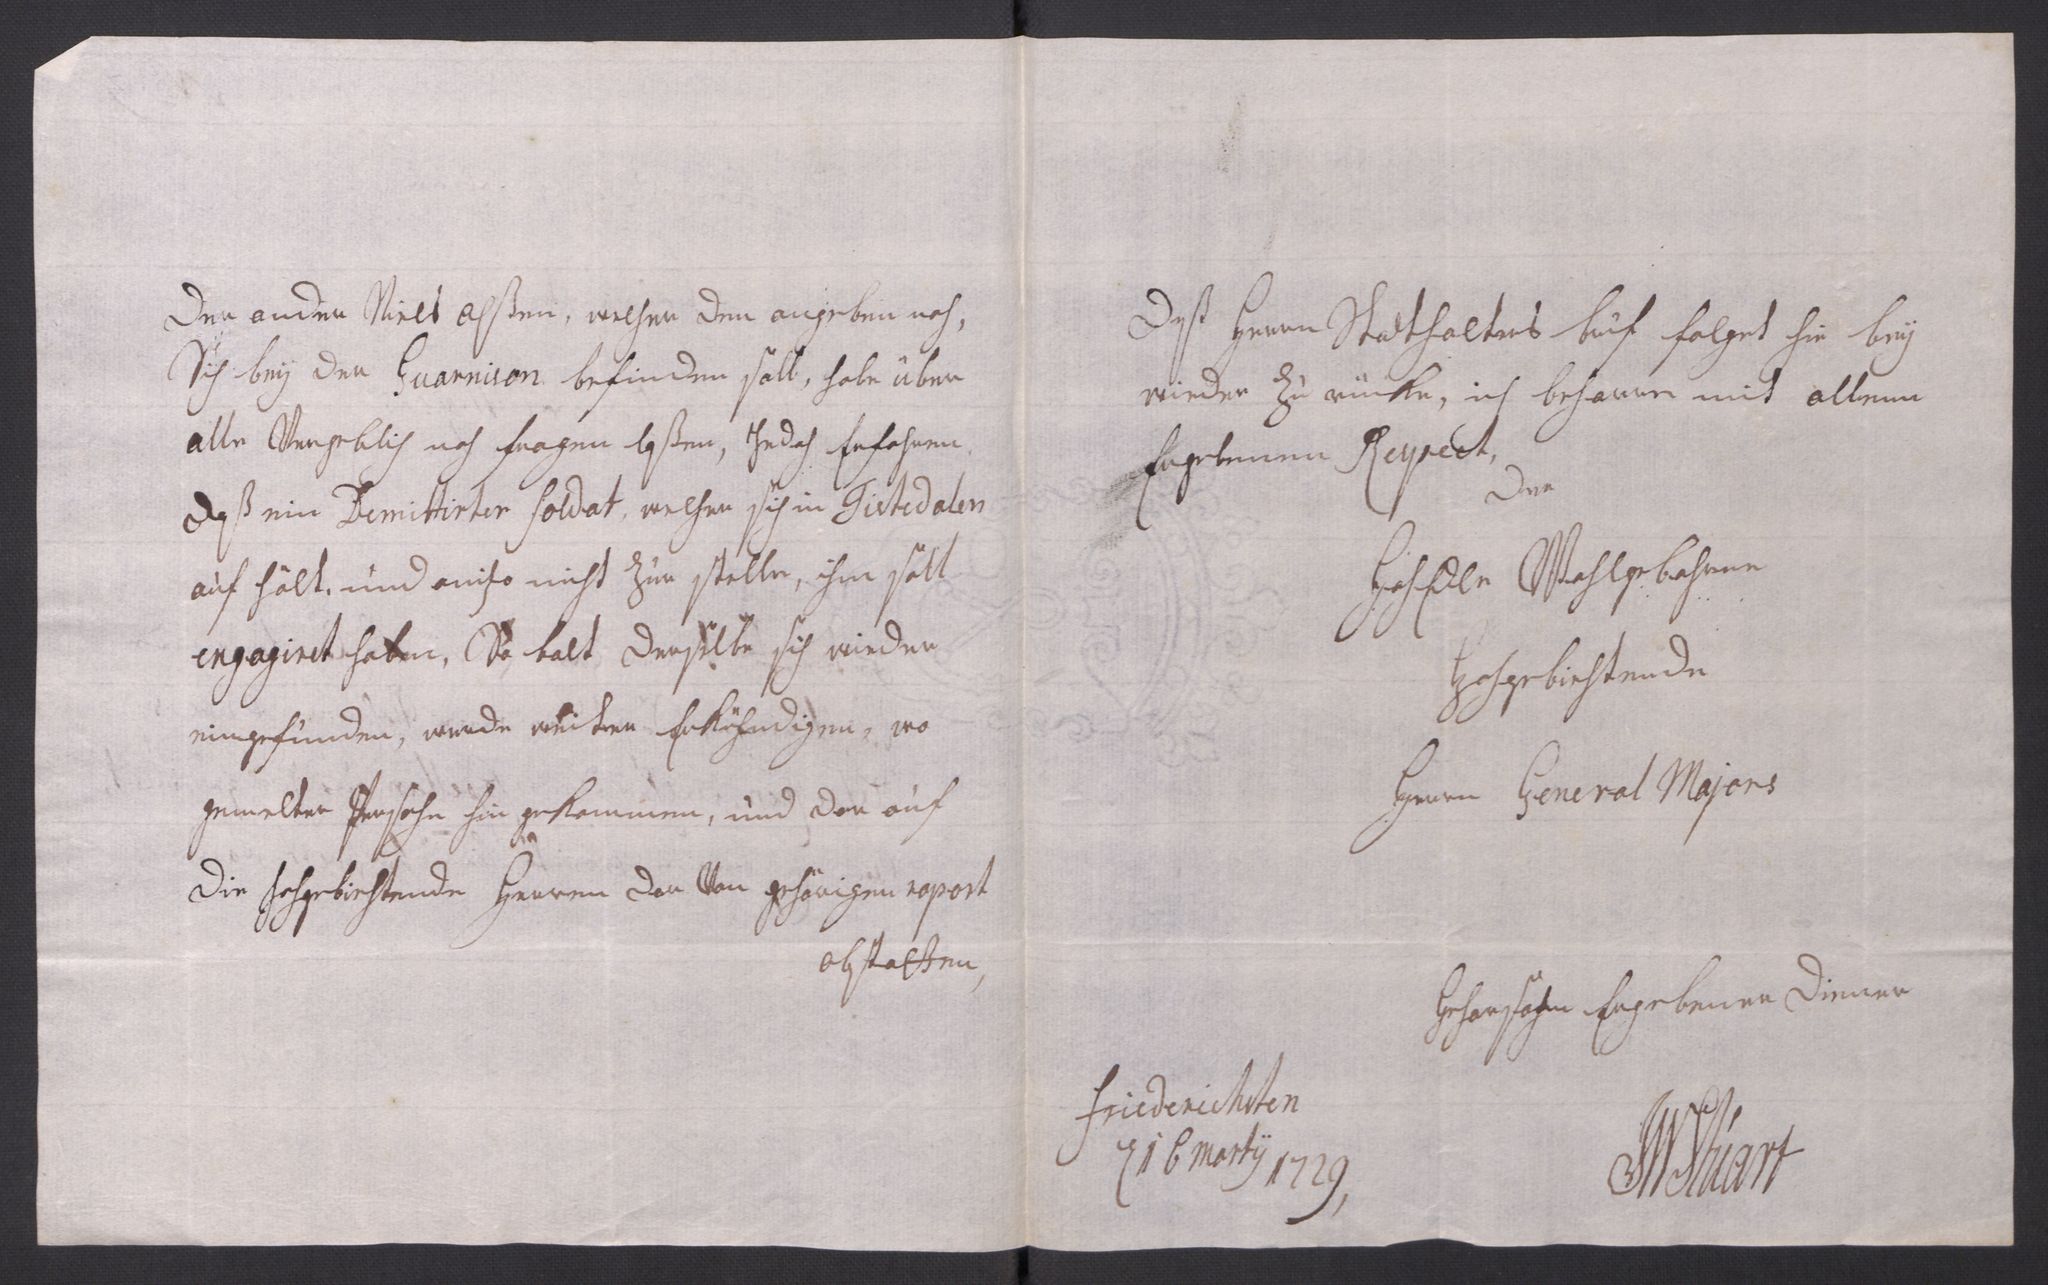 Der ander Niels Olßen, welcher dem angeben nach,
Sich beÿ der Guarnison befinden soll, habe über
alle Vergeblich nach fragen laßen, Jedoch Erfahren
daß ein Demittirter Soldat, welcher sich in Tistedalen
auf hält, und anitzo nicht Zur stelle, ihm soll
engagiret haben, So balt derselbe sich wieder
eingefunden, werde weiter Erkühndigen, wo
gemelter Persohn hin gekommen, und dar auf
die hochgebiehtende Herren dar Von gehörigen raport
abstatten,
Deß Herrn Stadthalters brief folget hie beÿ
wieder Zu rücke, ich beharre mit allem
Ergebenen Respect,
Der
HochEdle Wohlgebohrne
Hochgebiehtende
Herrn General Majors
Gehorsahm Ergebener Diener
Friederichsten
16 Martÿ 1729,
Stuart